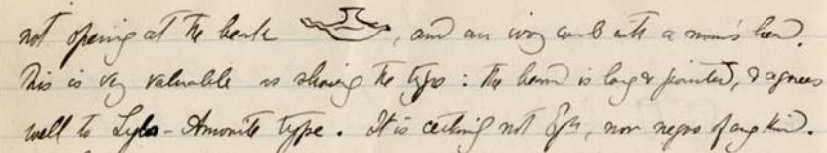 not opening at the beak , and an ivory comb with a man's head.
This is very valuable as shewing the type : the beard is long & pointed, & agrees
well to Lybo-Amorite type. It is certainly not Egn, nor negro of any kind.